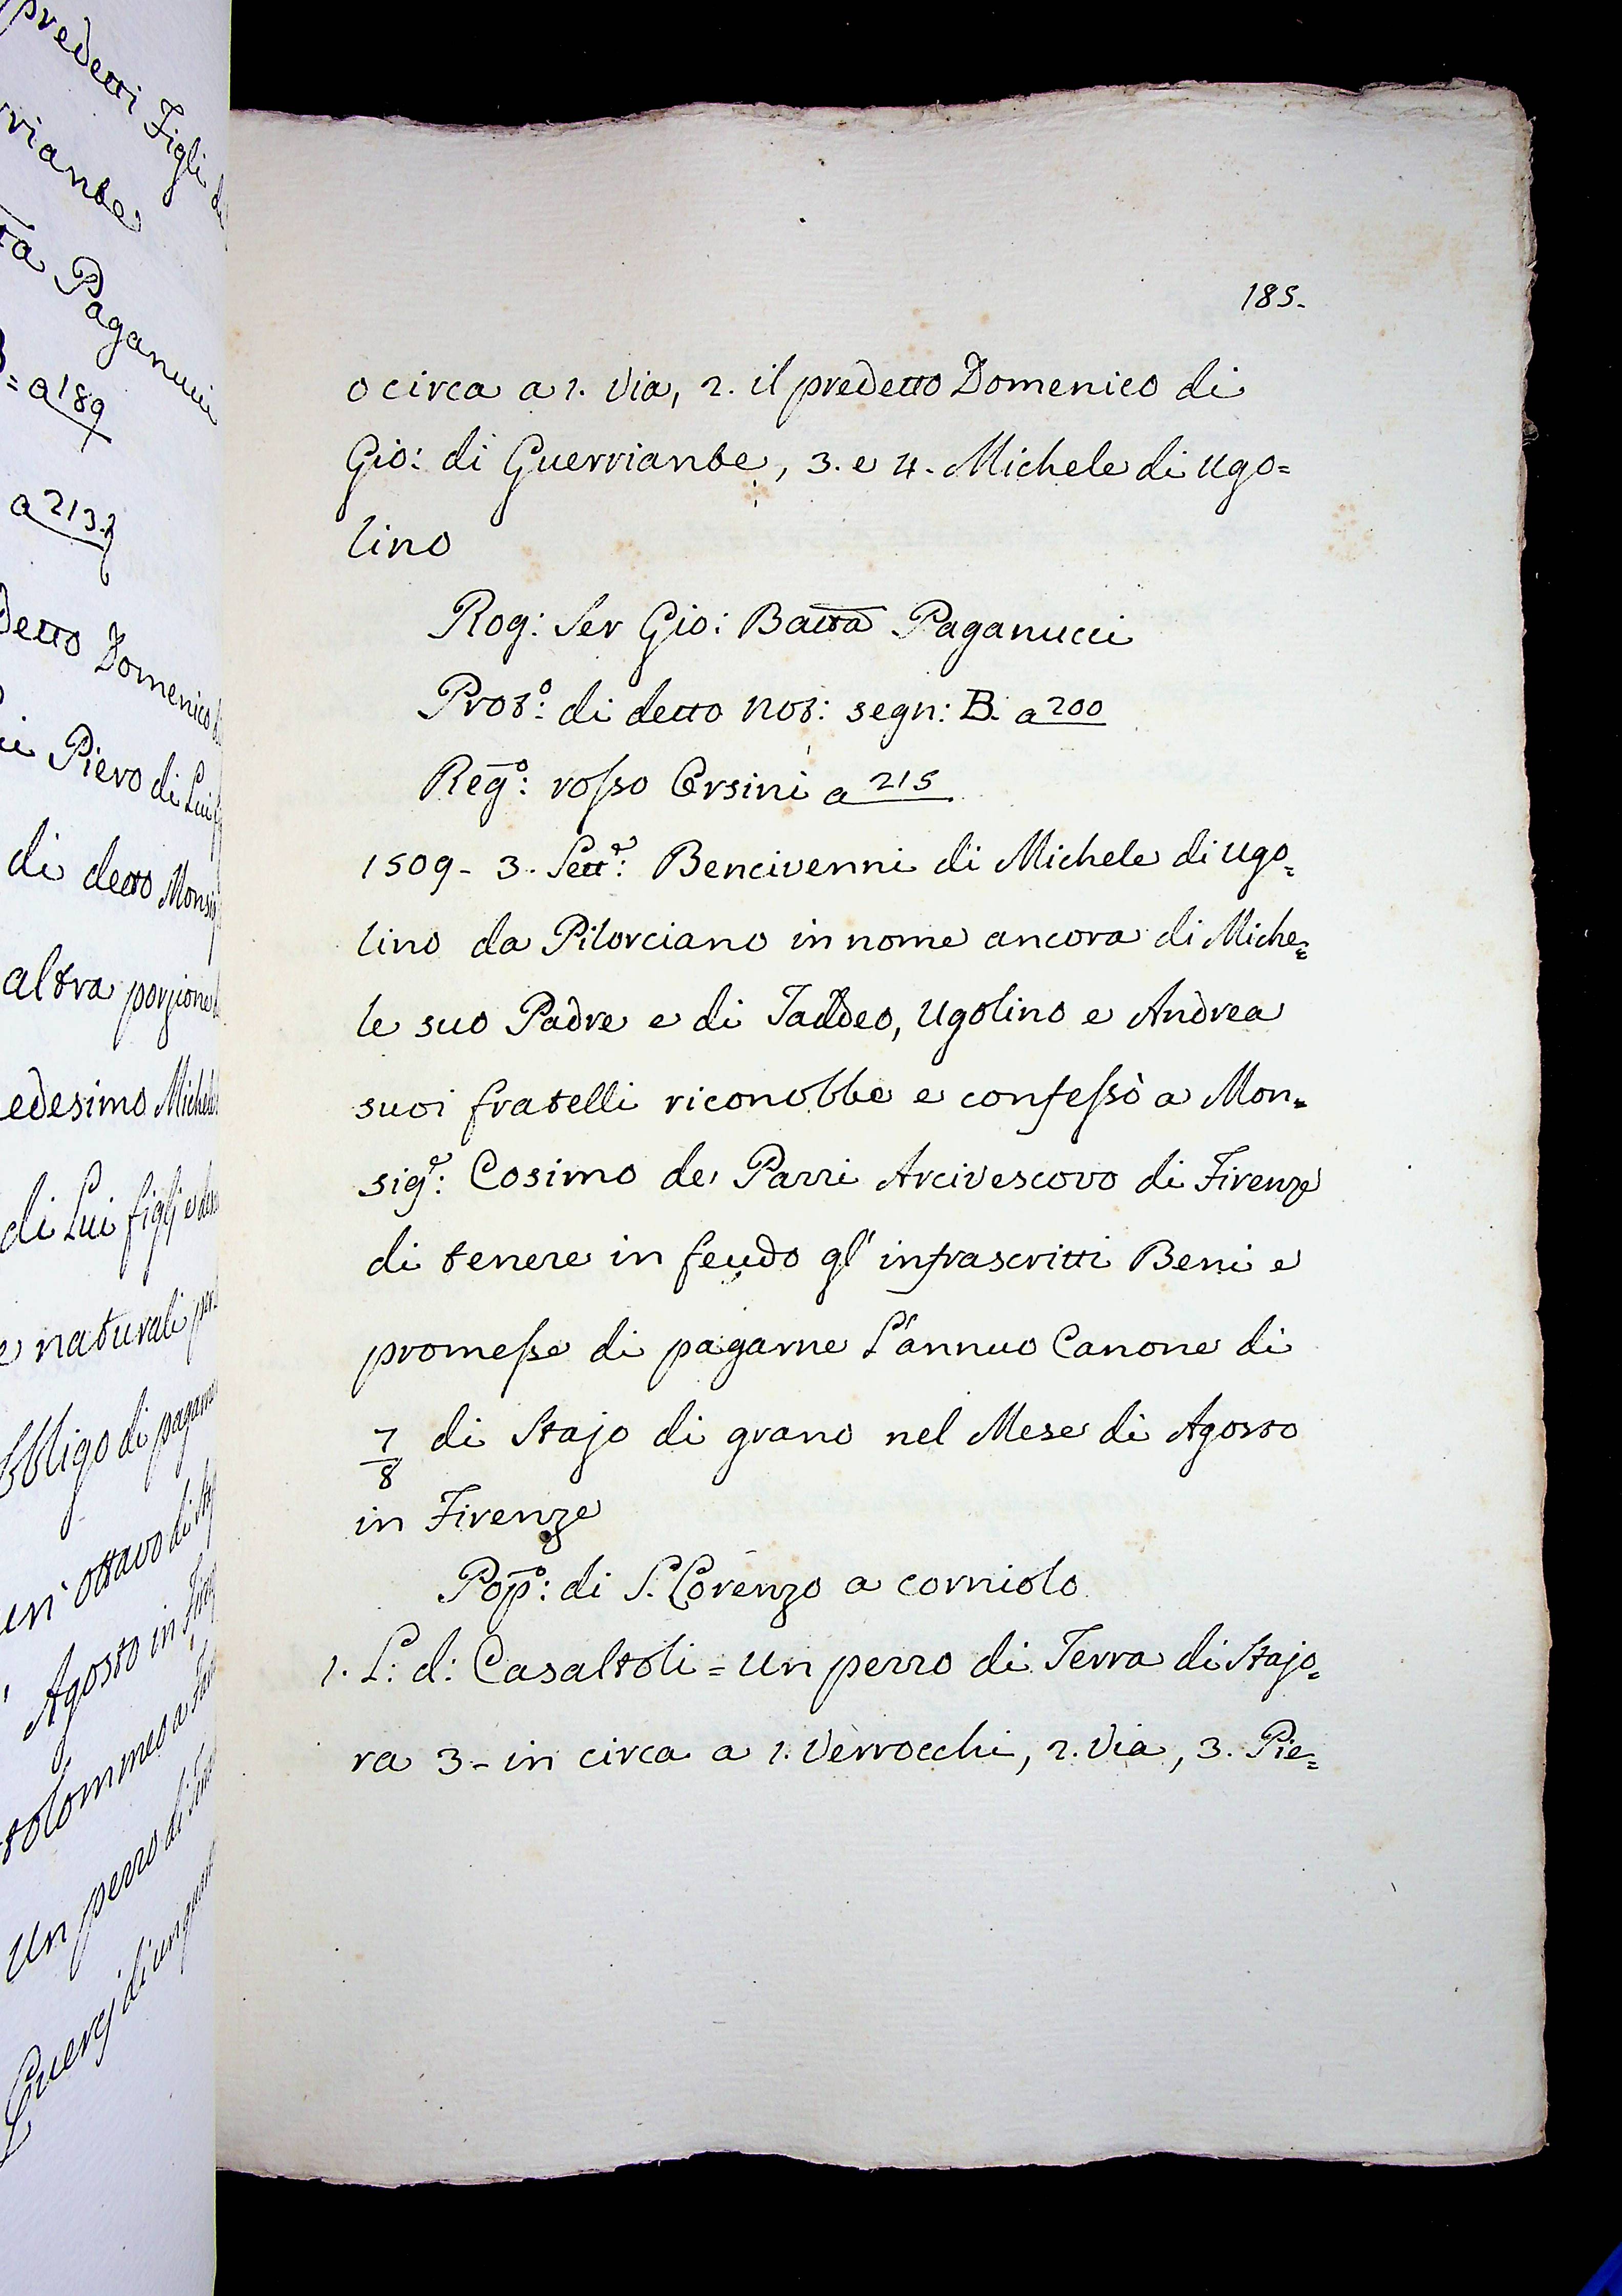 185.
o circa a 1. Via, 2. il predetto Domenico di
Gio: di Guerriante, 3. e 4. Michele di Ugo=
lino
Rog: Ser Gio: Batta Paganucci
Prot.º: di detto Not: segn: B. a 200
Reg.º: rosso Orsini a 215
1509 - 3. Sett.e: Bencivenni di Michele di Ugo=
lino da Pilorciano in nome ancora di Miche=
le suo Padre e di Taddeo, Ugolino e Andrea
suoi fratelli riconobbe e confessò a Mon=
sig.e: Cosimo de' Pazzi Arcivescovo di Firenze
di tenere in feudo gl' infrascritti Beni e
promesse di pagarne l'annuo Canone di
7/8 di Stajo di grano nel Mese di Agosto
in Firenze
Pop.º: di S. Lorenzo a corniolo
1. L: d: Casaltoli = Un pezzo di Terra di Stajo=
ra 3 - in circa a 1. Verrocchi, 2. Via, 3. Pie=
predetti Figli
Paganucci
= a 189
a 213
detto Domenico
Piero di
di detto
altra porzione
edesimo
di Lui figlj e
e naturali
bbligo di
ottavo di
Agosto in
tolommeo a
Un pezzo di